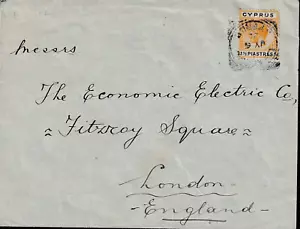 CYPRUS
PIASTRES
Messrs
The Economic Electric Co,
Fitzroy Square
London
England